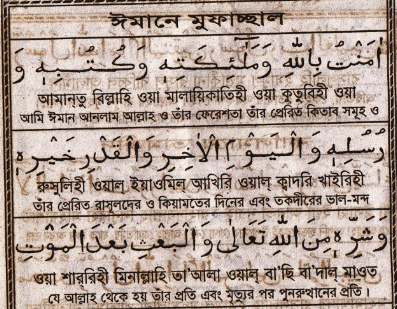 ঈমানে মুফাচ্ছাল
اٰمَنْتُ بِاللّٰهِ وَمَلٰٓئِكَتِهٖ وَكُتُبِهٖ وَ
আমানতু বিল্লাহি ওয়া মালায়িকাতিহী ওয়া কুতুবিহী ওয়া
আমি ঈমান আনলাম আল্লাহ ও তাঁর ফেরেশতা তাঁর প্রেরিত কিতাব সমূহ ও
رُسُلِهٖ وَالْيَوْمِ الْاٰخِرِ وَالْقَدْرِ خَيْرِهٖ
রুসুলিহী ওয়াল ইয়াওমিল আখিরি ওয়াল্ কাদরি খাইরিহী
তাঁর প্রেরিত রাসুলদের ও কিয়ামতের দিনের এবং তকদীরের ভাল-মন্দ
وَشَرِّهٖ مِنَ اللّٰهِ تَعَالٰى وَالْبَعْثِ بَعْدَ الْمَوْتِ
ওয়া শাররিহী মিনাল্লাহি তা'আলা ওয়াল্ বা'ছি বা'দাল মাওত
যে আল্লাহ থেকে হয় তার প্রতি এবং মৃত্যুর পর পুনরুত্থানের প্রতি।